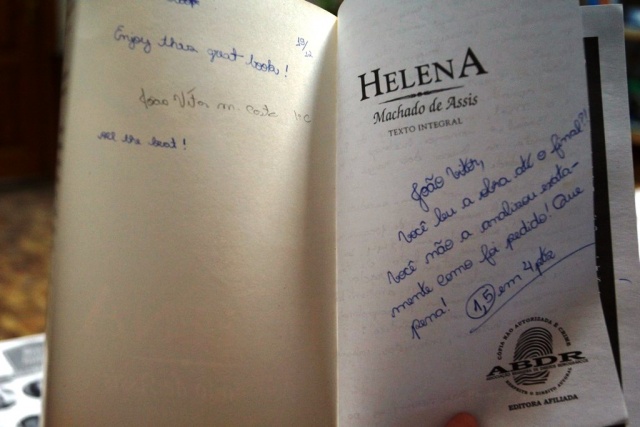 19/12
Enjoy this great book!
João Vitor M. Costa 1ºC
All the best!
HELENA
Machado de Assis
TEXTO INTEGRAL
João Vitor,
Você leu a obra até o final?!
Você não a analisou exata-
mente como foi pedido! Que
pena! 1,5 em 4 pts
CÓPIA NÃO AUTORIZADA É CRIME
ABDR
RESPEITE O DIREITO AUTORAL
EDITORA AFILIADA